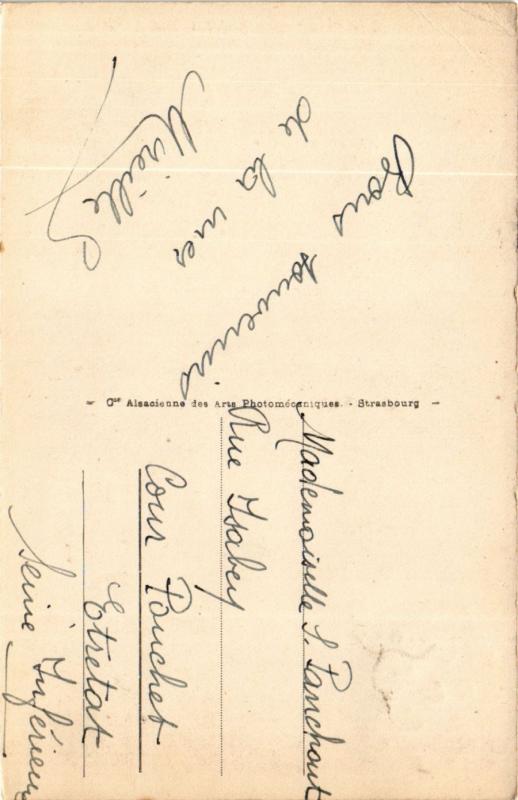 Bons souvenirs
de la mer
Mireille
Cie Alsacienne des Arts Photomécaniques. - Strasbourg
Mademoiselle S. Panchout
Rue Isabey
Cour Pouchet
Etretat
Seine Inférieure